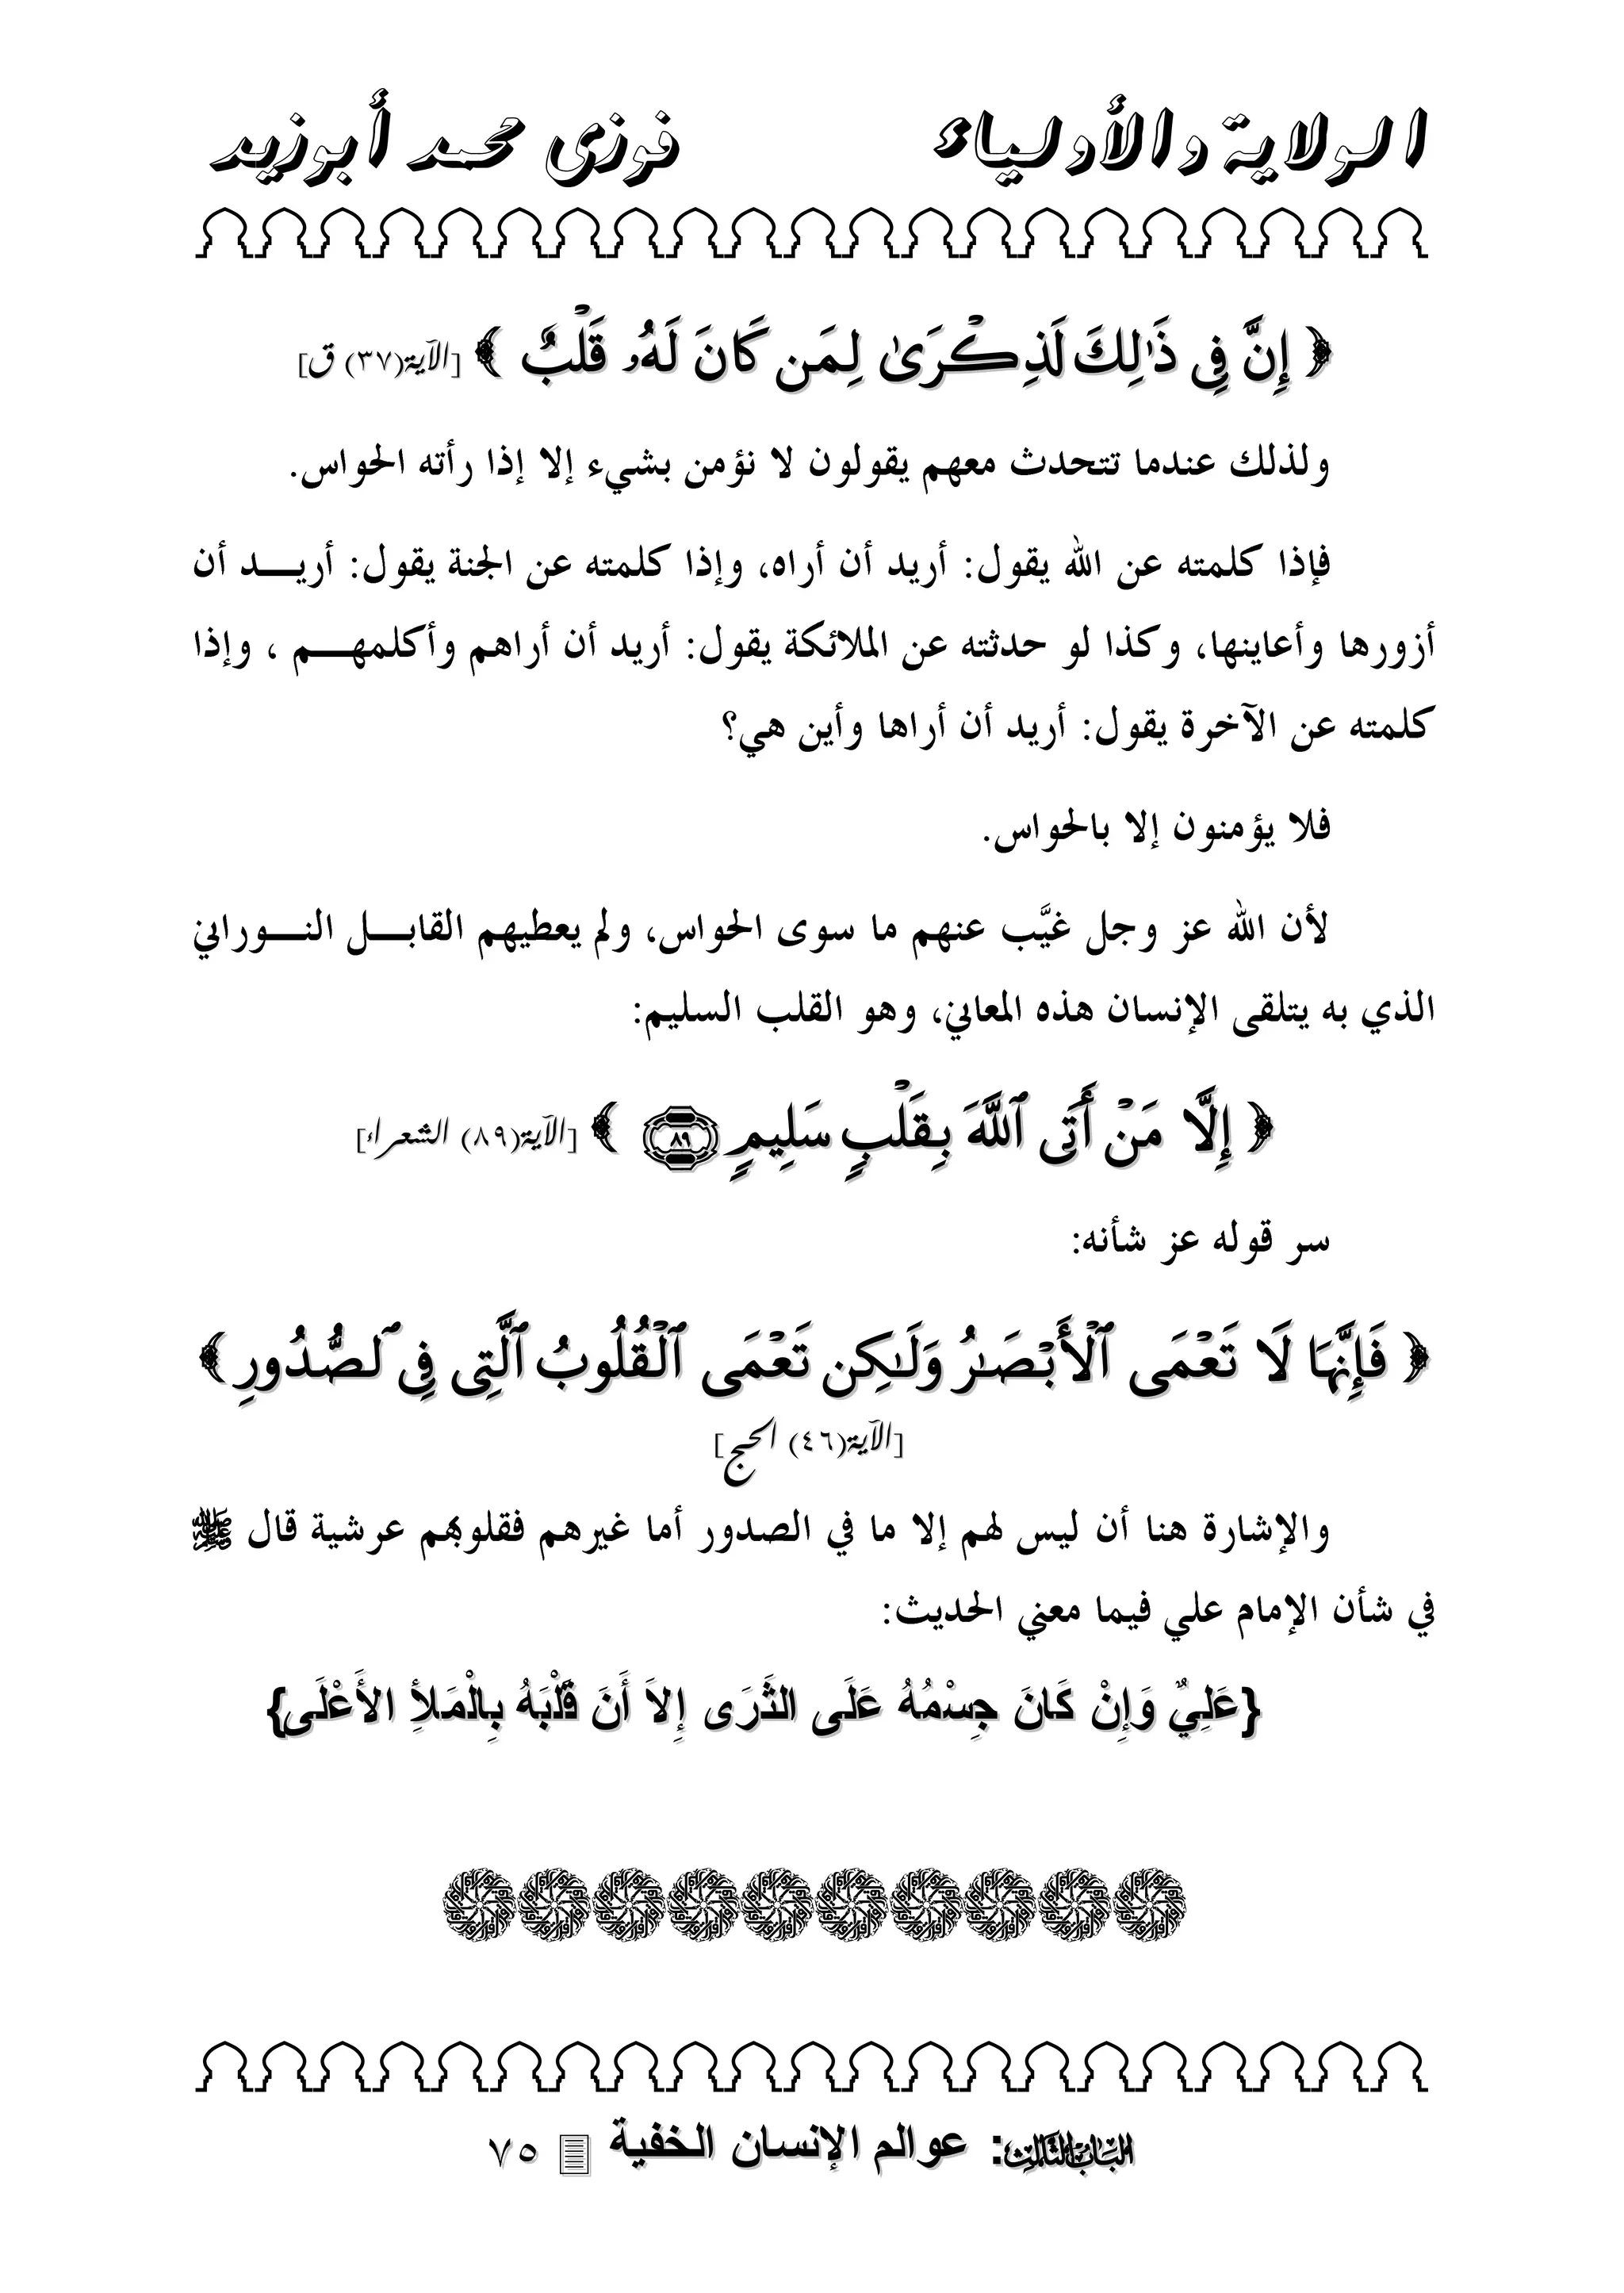 الولاية والأولياء فوزى محمد أبوزيد
﴿ إِنَّ فِى ذَٰلِكَ لَذِكْرَىٰ لِمَن كَانَ لَهُۥ قَلْبٌ ﴾ [الآية(٣٧) ق]
ولذلك عندما تتحدث معهم يقولون لا نؤمن بشيء إلا إذا رأته الحواس.
فإذا كلمته عن الله يقول: أريد أن أراه، وإذا كلمته عن الجنة يقول: أريـــد أن
أزورها وأعاينها، وكذا لو حدثته عن الملائكة يقول: أريد أن أراهم وأكلمهـــم ، وإذا
كلمته عن الآخرة يقول: أريد أن أراها وأين هي؟
فلا يؤمنون إلا بالحواس.
لأن الله عز وجل غيَّب عنهم ما سوى الحواس، ولم يعطيهم القابـــل النـــوراني
الذي به يتلقى الإنسان هذه المعاني، وهو القلب السليم:
﴿ إِلَّا مَنْ أَتَى ٱللَّهَ بِقَلْبٍ سَلِيمٍ ٨٩ ﴾ [الآية(٨٩) الشعراء]
سر قوله عز شأنه:
﴿ فَإِنَّهَا لَا تَعْمَى ٱلْأَبْصَـٰرُ وَلَـٰكِن تَعْمَى ٱلْقُلُوبُ ٱلَّتِى فِى ٱلصُّدُورِ ﴾
[الآية(٤٦) الحج]
والإشارة هنا أن ليس لهم إلا ما في الصدور أما غيرهم فقلوبهم عرشية قال ﷺ
في شأن الإمام علي فيما معني الحديث:
{عَلِيٌ وَإِنْ كَانَ جِسْمُهُ عَلَى الثَرَى إِلاَ أَنَ قَلْبَهُ بِالْمَلأِ الأَعْلَى}
الباب الثالث: عوالم الإنسان الخفية ٧٥